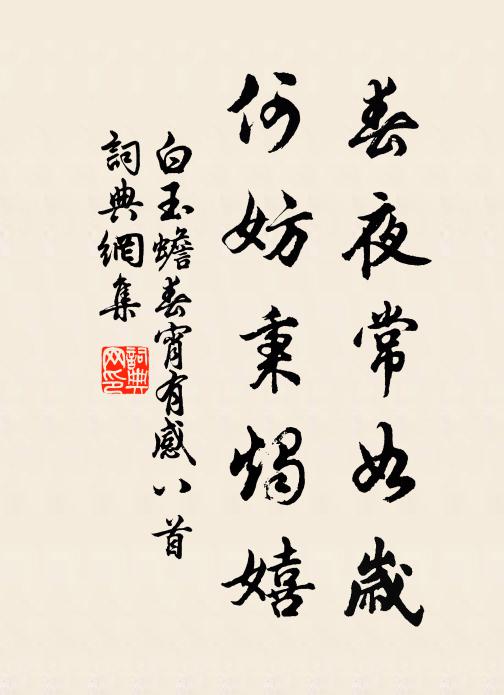 春夜常如歲
何妨秉燭嬉
白玉蟾春宵有感八首
詞典網集
詞典網印